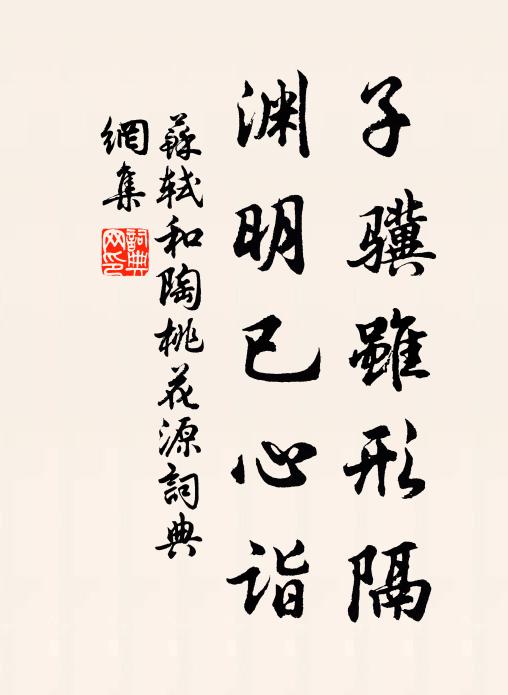 子骥雖形隔
渊明已心诣
蘇軾和陶桃花源詞典
網集
詞典
网印